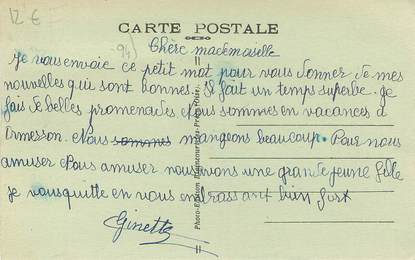 12 €
CARTE POSTALE
94
Chère mademoiselle
Je vous envoie ce petit mot pour vous donner de mes
nouvelles qui sont bonnes. Il fait un temps superbe. Je
fais de belles promenades. Nous sommes en vacances à
Ormesson. Nous sommes mangeons beaucoup. Pour nous
amuser Nous amuser nous avons une grande jeune fille
je vous quitte en vous embrassant bien fort
Ginette